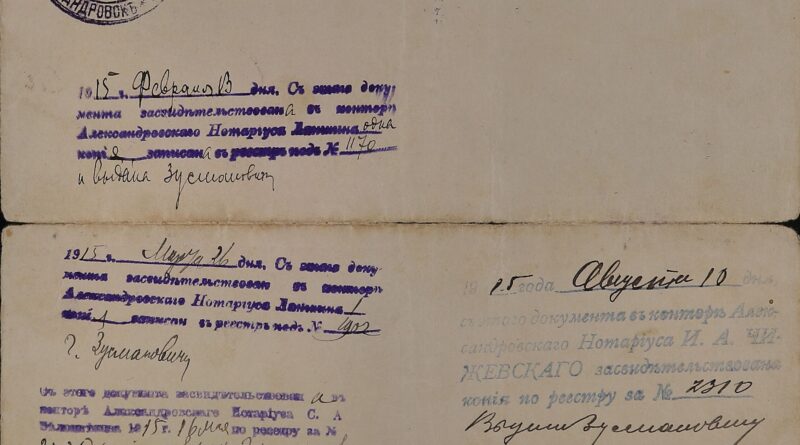 АНДРОВСКЪ
1915 г. Февраля 13 дня. Съ этого доку-
мента засвидѣтельствована въ конторѣ
Александровскаго Нотаріуса одна
копія записана въ реестръ подъ № 1170
и выдана Зусмановичу
1915 г. Марта 26 дня. Съ этого доку-
мента засвидѣтельствован въ конторѣ
Александровскаго Нотаріуса 1
копі записан въ реестръ подъ №
г. Зусмановичу
Съ этого документа засвидѣтельствована въ
конторѣ Александровскаго Нотаріуса С. А
1915 г. 16 мая по реестру за №
1915 года Августа 10 дня
съ этого документа въ конторѣ Алек-
сандровскаго Нотаріуса И. А. ЧИ-
ЖЕВСКАГО засвидѣтельствована
копія по реестру за № 2310
Выдана Зусмановичу